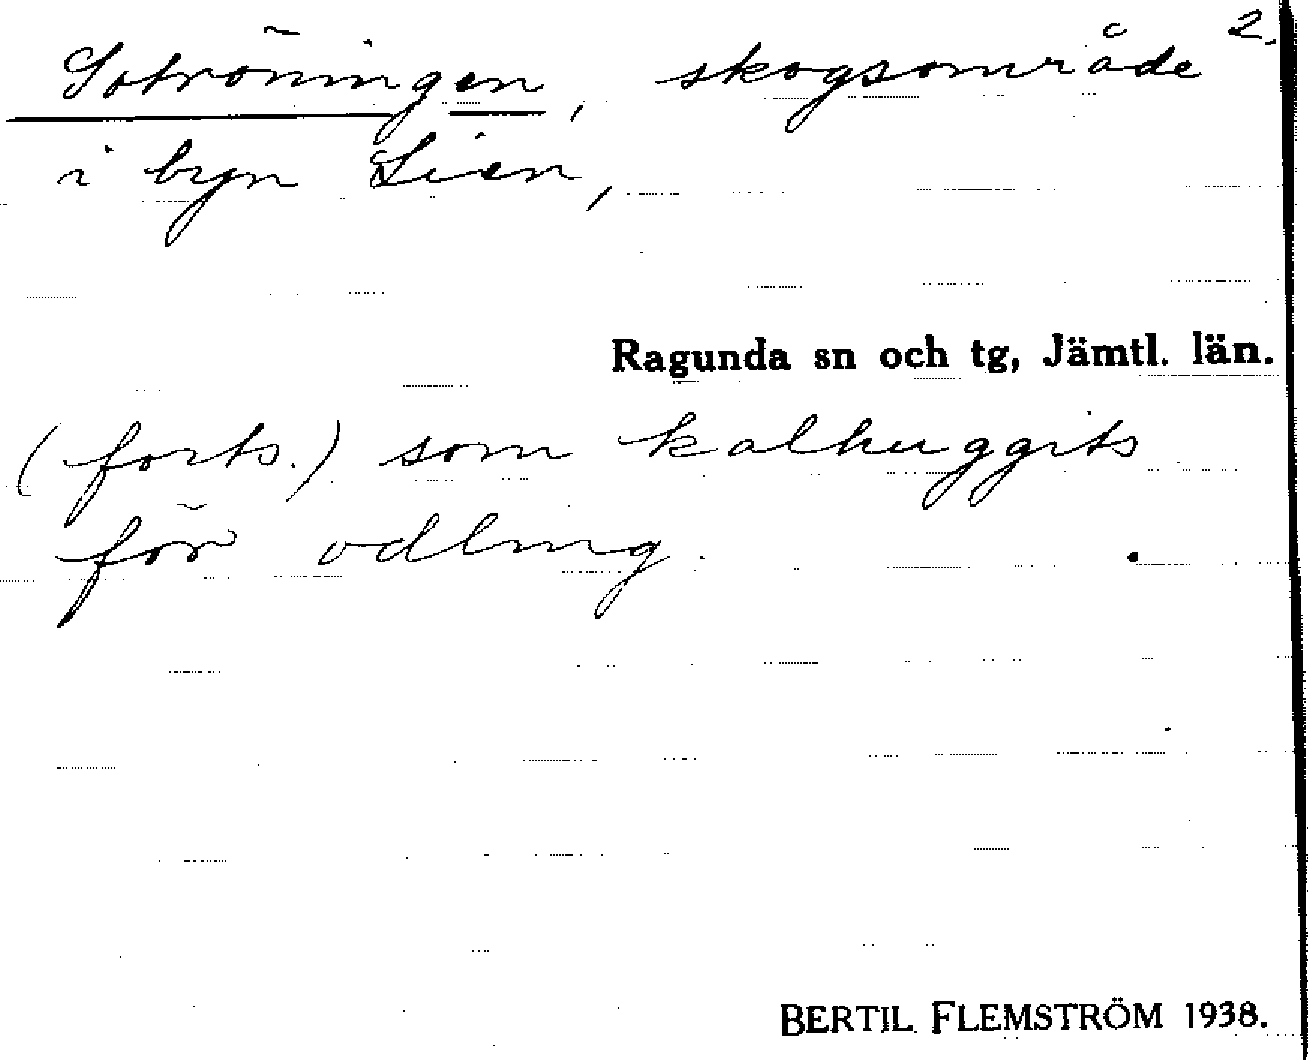 2.
Sotröningen, skogsområde
i byn Lien,
Ragunda sn och tg, Jämtl. län.
(forts.) som kalhuggits
för odling.
BERTIL FLEMSTRÖM 1938.